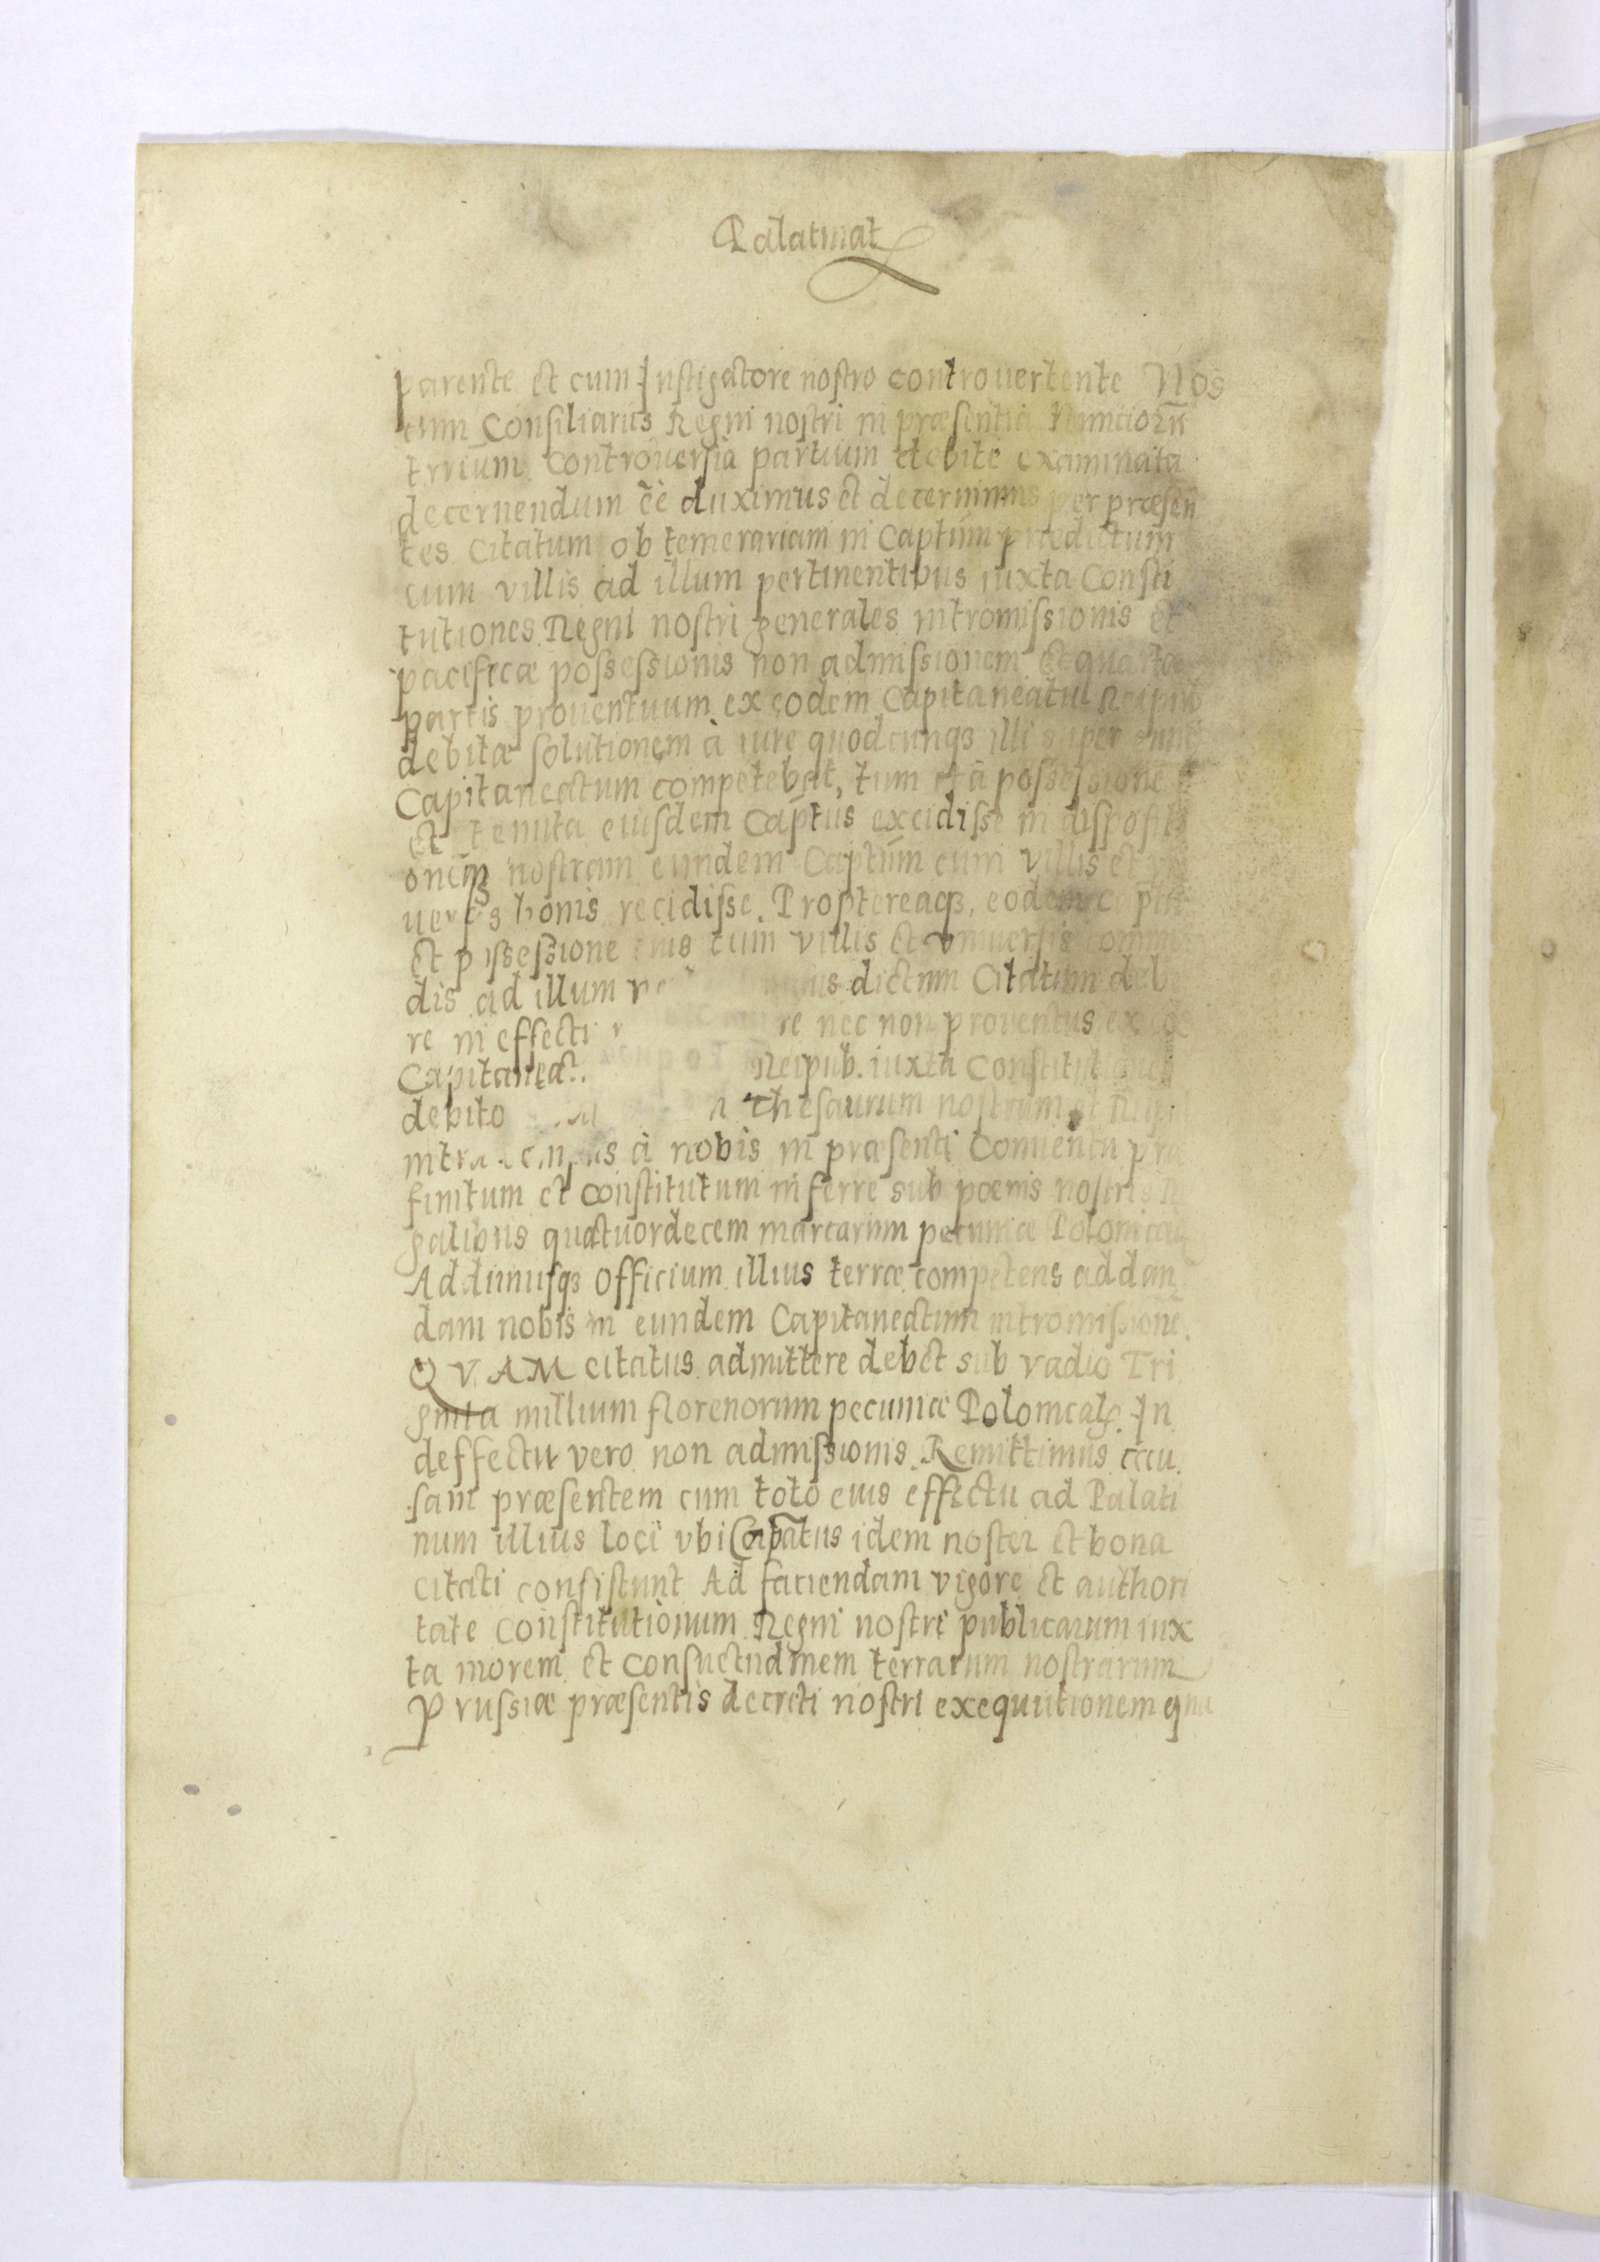 Palatinat
parente et cum Instigatore nostro controuertente Nos
cum Consiliarijs Regni nostri in præsentia Nunciorū
trrium controuersia partium debite examinata
decernendum ēe duximus et decernimus per præsen
tes Citatum ob temerariam in Captūm prædictum
cum villis ad illum pertinentibus iuxta Consti
tutiones Regni nostri generales intromissionis et
pacificæ possessionis non admissionem et quartæ
partis prouentuum ex eodem Capitaneatu Reipub
debitæ solutionem à iure quodcunqȝ illi super eun
Capitaneatum competebat, tum et à possessione
et tenuta eiusdem Captūs excidisse in dispositi
onem nostram eundem Captūm cum villis et
uersis bonis recidisse. Proptereaqȝ, eodem
et possessione eius cum villis et vniuersis
dis ad illum dictum Citatum debe
re in effectu re nec non prouentus ex
Capitaneat Reipub. iuxta Constitut
debito Thesaurum nostrum et
intra tempus à nobis in præsenti Conuentu præ
finitum et constitutum inferre sub poenis nostris
galibus quatuordecem marcarum pecuniæ Polonical
Addimusqȝ officium illius terræ competens ad dan
dam nobis in eundem Capitaneatum intromissionē.
QVAM citatus admittere debet sub vadio Tri
ginta millium florenorum pecuniæ Polonicalę. In
deffectu vero non admissionis Remittimus cau
sam præsentem cum toto eius effectu ad Palati
num illius loci vbi Capatus idem noster et bona
citati consistunt Ad faciendam vigore et authori
tate Constitutionum Regni nostri publicarum iux
ta morem et consuetudinem terrarum nostrarum
Prussiæ præsentis decreti nostri exequutionem